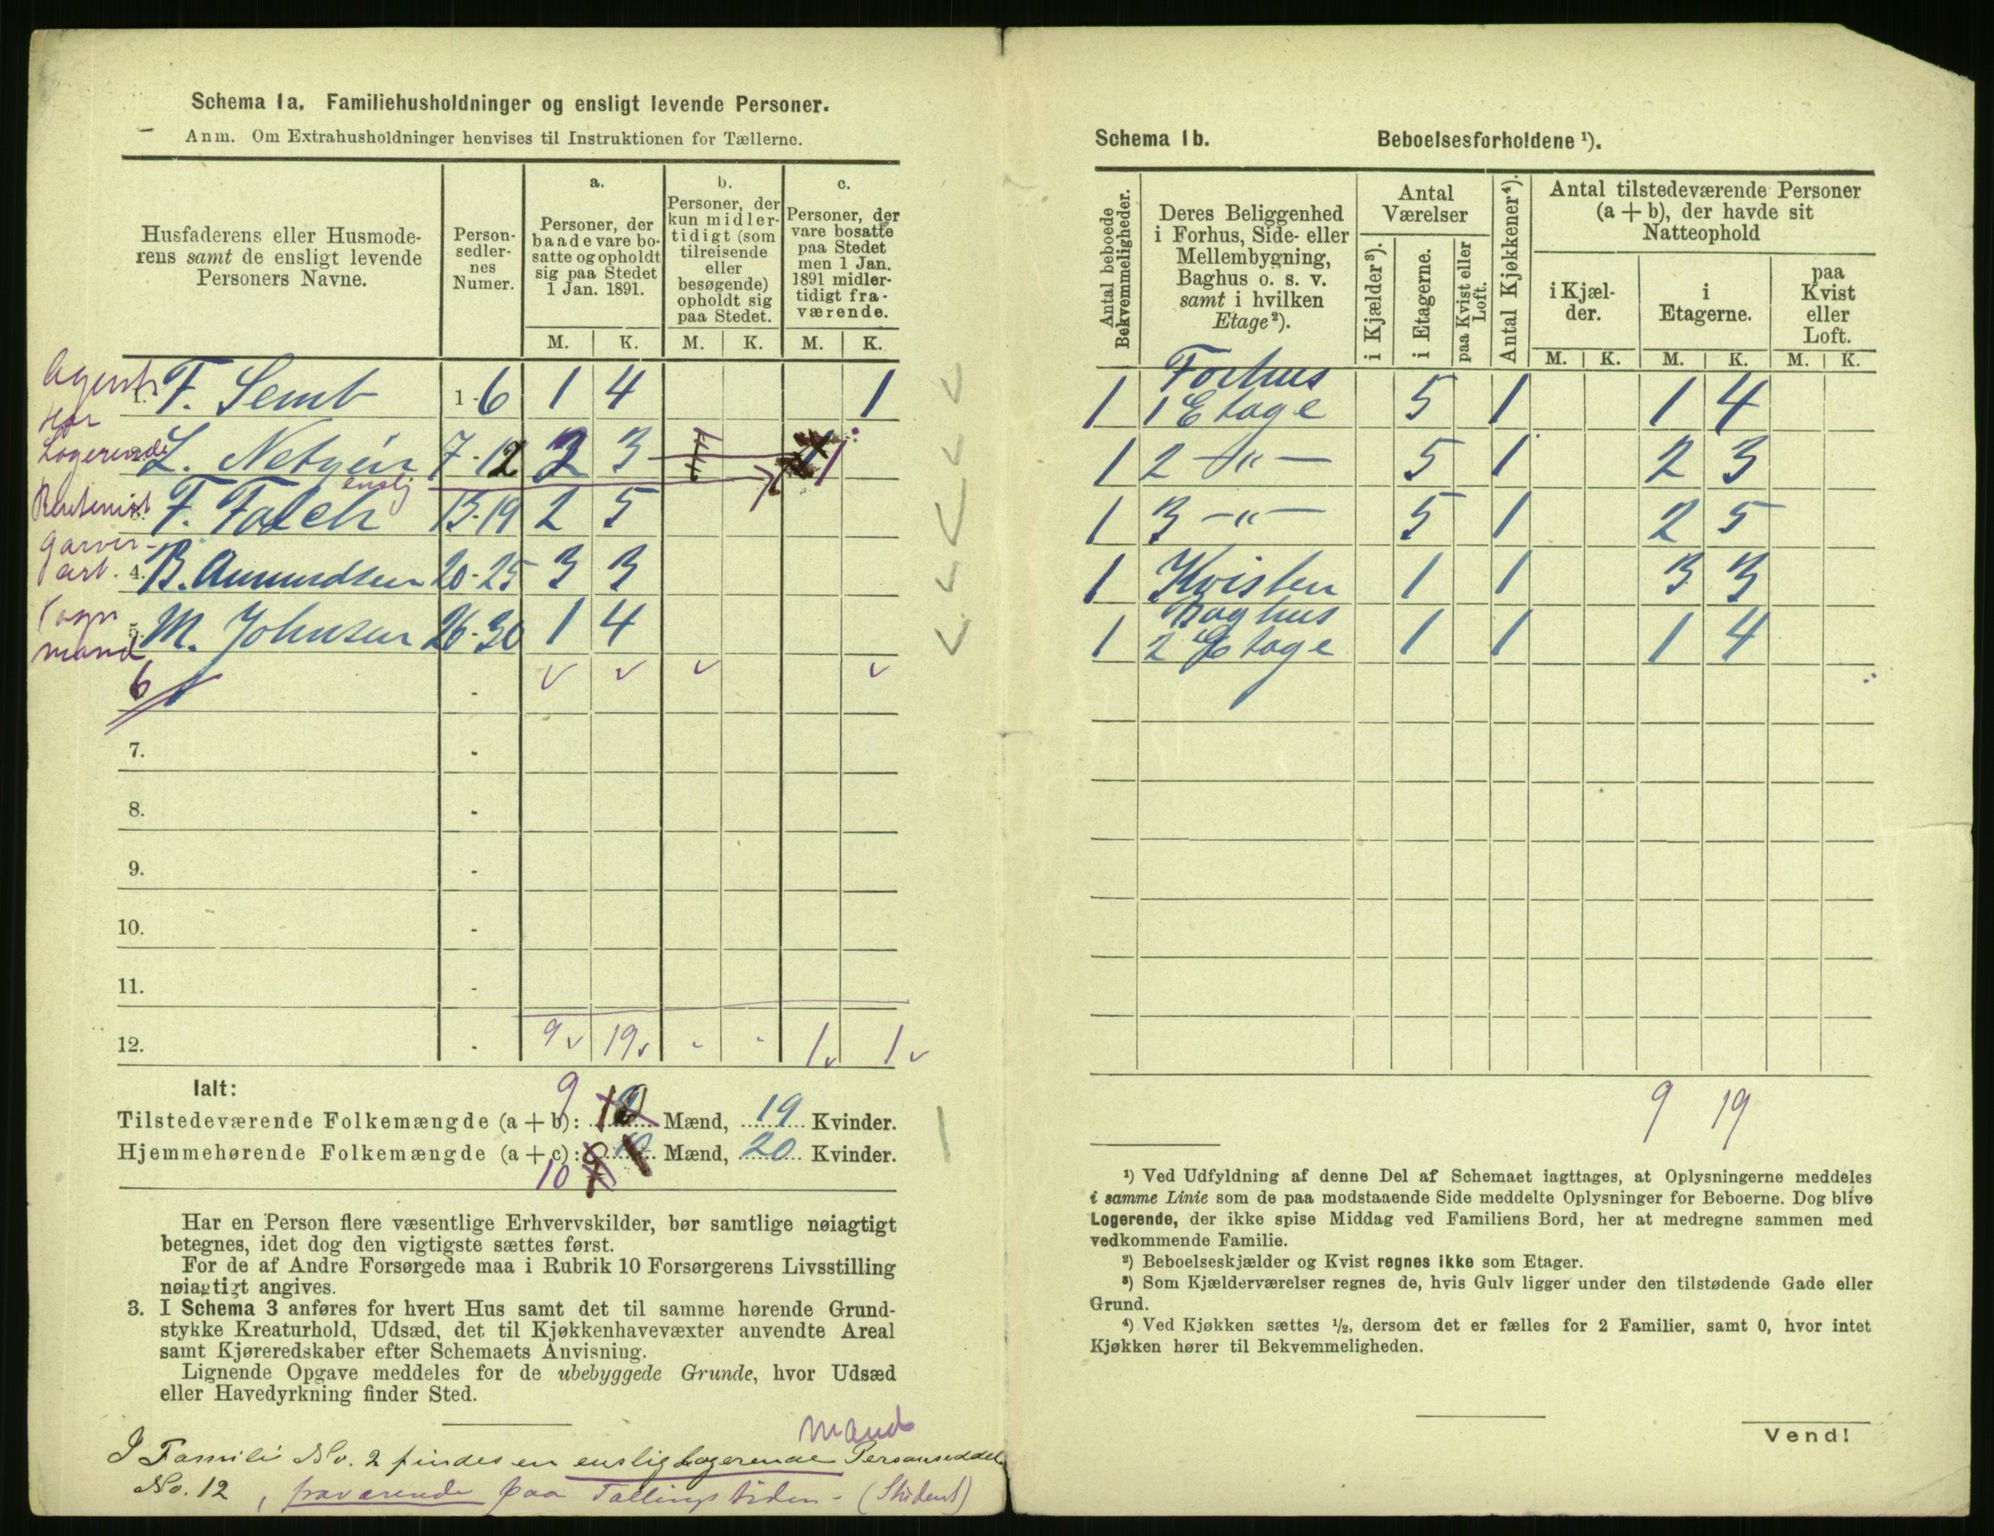 Schema 1a. Familiehusholdninger og ensligt levende Personer.
Anm. Om Extrahusholdninger henvises til Instruktionen for Tællerne.
Husfaderens eller Husmode-
rens samt de ensligt levende
Personers Navne.
Person-
sedler-
nes
Numer.
a.
Personer, der
baade vare bo-
satte og opholdt
sig paa Stedet
1 Jan. 1891.
b.
Personer, der
kun midler-
tidigt (som
tilreisende
eller
besøgende)
opholdt sig
paa Stedet.
c.
Personer, der
vare bosatte
paa Stedet
men 1 Jan.
1891 midler-
tidigt fra-
værende.
M. K. M. K. M. K.
Agent 1. F. Semb 1-6 1 4 1
Logerende 2. L. 7-12 2 3 1
enslig
3. F. Falch 13-19 2 5
Garver-
arb. 4. B. Amundsen 20-25 3 3
Vogn
mand 5. M. Johnsen 26-30 1 4
6 -
7. -
8. -
9. -
10. -
11. -
12. - 9 19 - - 1 1
Ialt:
Tilstedeværende Folkemængde (a + b): 9 Mænd, 19 Kvinder.
Hjemmehørende Folkemængde (a + c): 10 Mænd, 20 Kvinder.
Har en Person flere væsentlige Erhvervskilder, bør samtlige nøiagtigt
betegnes, idet dog den vigtigste sættes først.
For de af Andre Forsørgede maa i Rubrik 10 Forsørgerens Livsstilling
nøiagtigt angives.
3. I Schema 3 anføres for hvert Hus samt det til samme hørende Grund-
stykke Kreaturhold, Udsæd, det til Kjøkkenhavevæxter anvendte Areal
samt Kjøreredskaber efter Schemaets Anvisning.
Lignende Opgave meddeles for de ubebyggede Grunde, hvor Udsæd
eller Havedyrkning finder Sted.
Mand
I Familie No. 2 findes en enslig Logerende Personseddel
No. 12, fraværende paa Tællingstiden - (Student)
Schema 1b. Beboelsesforholdene ¹).
Antal beboede
Bekvemmeligheder.
Deres Beliggenhed
i Forhus, Side- eller
Mellembygning,
Baghus o. s. v.
samt i hvilken
Etage²).
Antal
Værelser
i Kjælder³).
i Etagerne.
paa Kvist eller
Loft.
Antal Kjøkkener⁴).
Antal tilstedeværende Personer
(a + b), der havde sit
Natteophold
i Kjæl-
der.
i
Etagerne.
paa
Kvist
eller
Loft.
M. K. M. K. M. K.
1 Forhus
1 Etage 5 1 1 4
1 2 -"- 5 1 2 3
1 3 -"- 5 1 2 5
1 Kvisten 1 1 3 3
1 Baghus
2 Etage 1 1 1 4
9 19
¹) Ved Udfyldning af denne Del af Schemaet iagttages, at Oplysningerne meddeles
i samme Linie som de paa modstaaende Side meddelte Oplysninger for Beboerne. Dog blive
Logerende, der ikke spise Middag ved Familiens Bord, her at medregne sammen med
vedkommende Familie.
²) Beboelseskjælder og Kvist regnes ikke som Etager.
³) Som Kjælderværelser regnes de, hvis Gulv ligger under den tilstødende Gade eller
Grund.
⁴) Ved Kjøkken sættes ½, dersom det er fælles for 2 Familier, samt 0, hvor intet
Kjøkken hører til Bekvemmeligheden.
Vend!